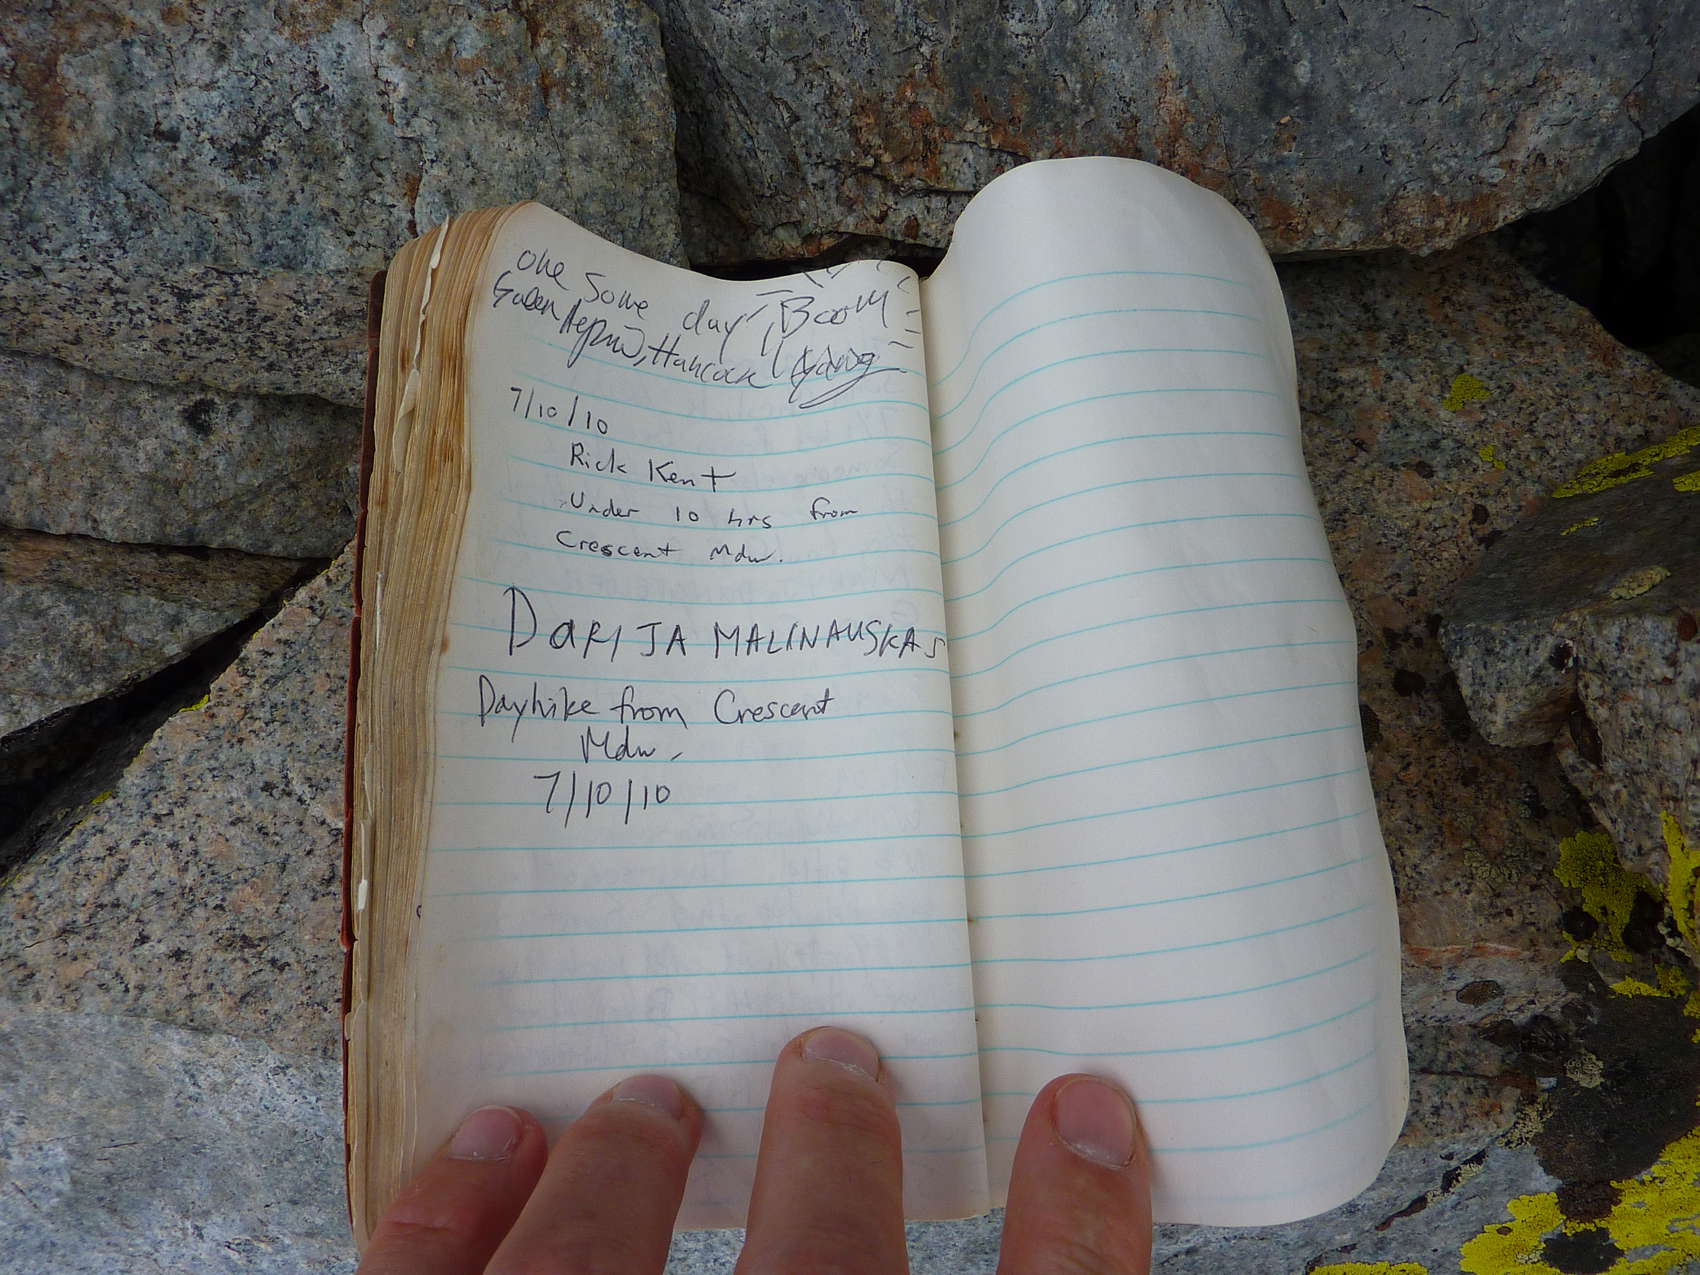 one some day Boom
Hancock
7/10/10
Rick Kent
Under 10 hrs from
Crescent Mdw.
DARIJA MALINAUSKAS
Dayhike from Crescent
Mdw.
7/10/10